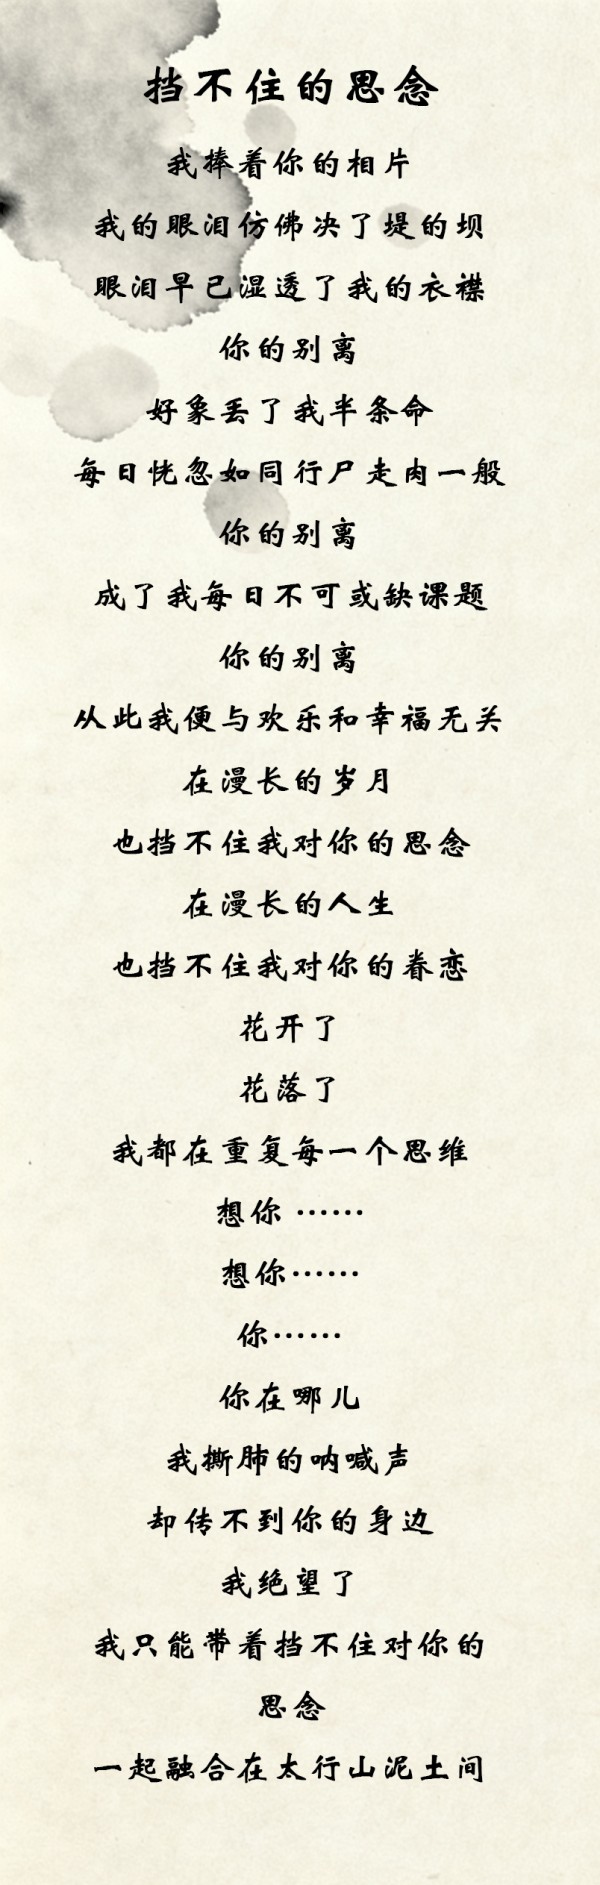 挡不住的思念
我捧着你的相片
我的眼泪仿佛决了堤的坝
眼泪早已湿透了我的衣襟
你的别离
好象丢了我半条命
每日恍忽如同行尸走肉一般
你的别离
成了我每日不可或缺课题
你的别离
从此我便与欢乐和幸福无关
在漫长的岁月
也挡不住我对你的思念
在漫长的人生
也挡不住我对你的眷恋
花开了
花落了
我都在重复每一个思维
想你 ……
想你……
你……
你在哪儿
我撕肺的呐喊声
却传不到你的身边
我绝望了
我只能带着挡不住对你的
思念
一起融合在太行山泥土间